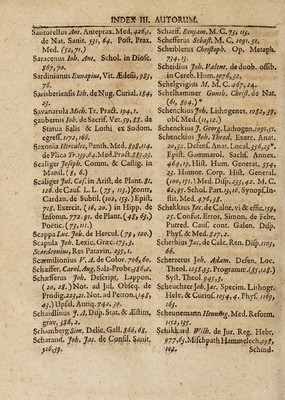 INDEX III. AUTORUM.
Santorellus Ant. Anteprax. Med. 426,1.
de Nat. Sanit. 531, 64. Post. Prax.
Med. (52, 71.)
Saracenus Joh. Ant. Schol. in Diosc.
867, 70.
Sardinianus Eunapius, Vit. Ædesii, 983,
76.
Sarisberiensis Joh. de Nug. Curial. 184,
23.
Savanarola Mich. Tr. Pract. 194, 1.
gaubertus Joh. de Sacrif. Vet. 39, 88. de
Statua Salis & Lothi ex Sodom.
egress. 1172, 166.
Saxonia Hercules, Panth. Med. 898, 114.
de Plica Tr. 139, 64. Med. Pract. 881, 97.
Scaliger Joseph. Comm. & Castig. in
Manil. (8, 6.)
Scaliger Jul. Cæs. in Arist. de Plant. 81,
126. de Caus. L. L. (75, 113.) contr,
Cardan. de Subtil. (102, 155.) Epist.
715. Exercit. (16, 20.) in Hipp. de
Insomn. 772, 91. de Plant. (48, 63.)
Poëtic. (73, 111.)
Scappa Luc. Joh. de Hercul. (79, 120.)
Scapula Joh. Lexic. Græc. 175, 3.
Scardeonius, Res Patavin. 235, 1.
Scarmilionius V. A. de Color. 706, 60.
Schæffer. Carol. Aug. Salz-Probe. 286, 42.
Schæfferus Joh. Descript. Lappon.
(20, 28.) Not. ad Jul. Obseq. de
Prodig. 223, 21. Not. ad Petron. (148,
43.) Upsal. Antiq. 742, 39.
Schaidlinus J. A, Disp. Stat. & Æstim,
grav, 586, 2.
Schamberg Sim. Delic. Gall. 866, 68.
Scharand. Joh. Jac. de Consil. Sanit.
316, 39.
Scharff. Benjam. M. C. 73, 113.
Schefferus Sebast. M. C. 1091, 51.
Scheibletus Christoph. Op. Metaph.
734, 13.
Scheidius Joh. Valent. de duob. ossib.
in Cereb. Hum. 1076, 52.
Schelgvigius M. M. C. 467, 24.
Schelhammer Gunth. Christ. de Nat.
(61, 894.)*
Schenckius Joh. Lithogenes. 1082, 39.
obs. Med. (11, 12.)
Schenckius J. Georg. Lithogen. 1091, 51.
Schenckius Joh. Theod. Exerc. Anat.
20, 32. Defens. Anat. Local, 556, 23*.
Epist. Gammarol. Sachs. Annex.
464, 19. Hist. Hum. General. 594,
23. Humor. Corp. Hist. General.
(100, 151.) Med. Disp. 235, 42. M. C.
82, 95. Schol. Part. 93, 16. Synops. Instit.
Med. 476, 38.
Scheckius Jac. de Calor. vi & effic. 159,
25. Confut. Error. Simon. de Febr.
Putred. Caus. cont. Galen. Disp.
& Phys. Med. 277, 2.
Scherbius Jac. de Calc. Ren. Disp. 1109,
66.
Scherzerus Joh, Adam. Defens. Loc.
Theol. 1258, 55. Programm. (85, 128.)
Syst. Theol. 945, 5.
Scheuchzer Joh, Jac. Specim. Lithogr.
Helv. & Curios. 1054, 4. Phys. 1169,
163.
Scheunemann Henning. Med. Reform.
1152, 135.
Schikkard. Wilh. de Jur. Reg. Hebr.
977, 65. Mischpath Hammelech, 998,
102. Schind-